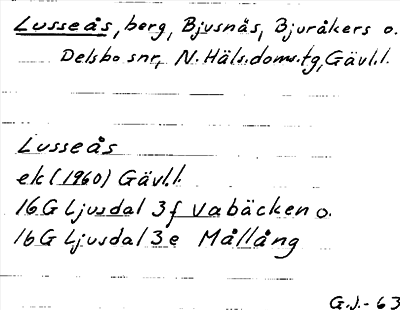 Lusseås, berg, Bjusnäs, Bjuråkers o.
Delsbo snr, N. Häls.doms.tg, Gävl.l.
Lusseås
ek (1960) Gävl.l.
16G Ljusdal 3f Vabäcken o.
16G Ljusdal 3e Mållång
G.J.-63